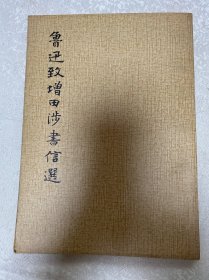 鲁迅致增田涉書信選